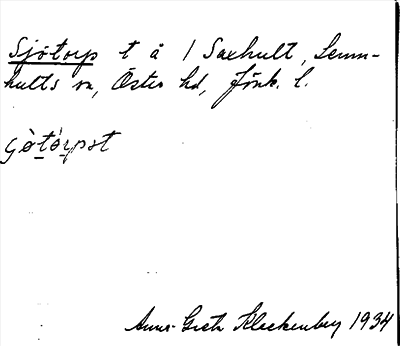 Sjötorp t å 1 Saxhult, Lemn-
hults sn, Östra hd, Jönk. l.
Anna-Greta Kleckenberg 1934